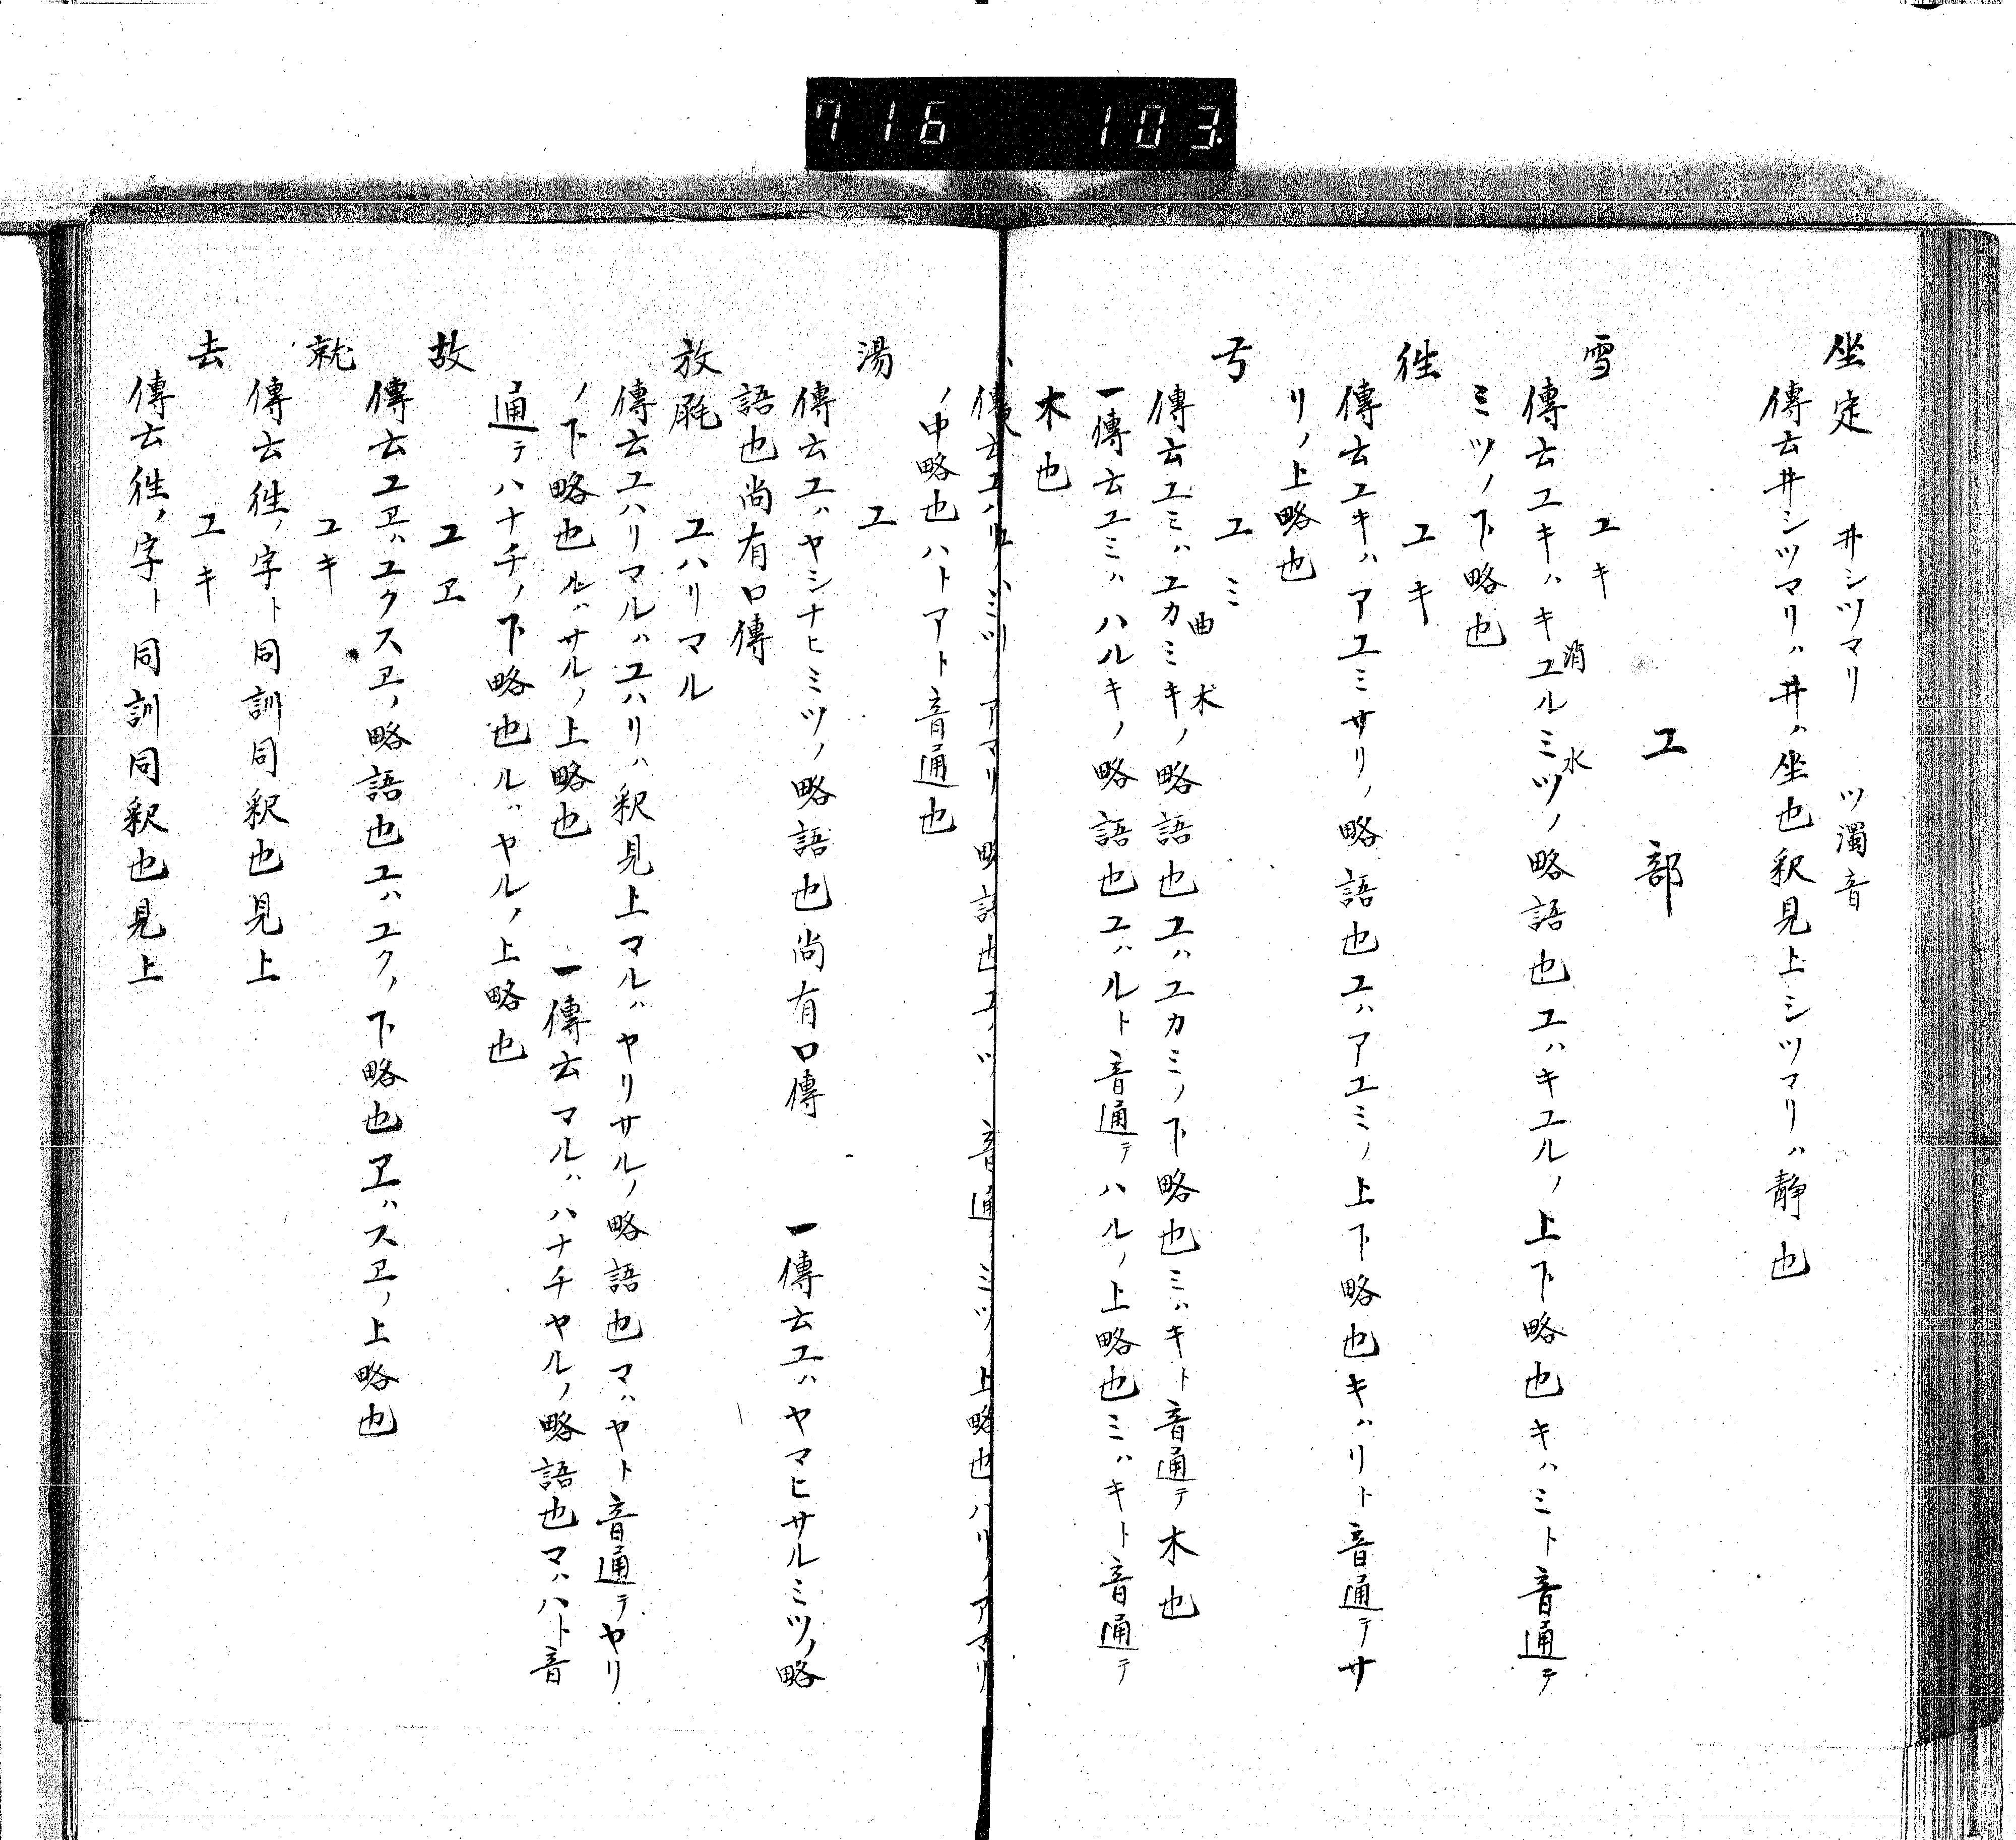 716 103
坐定 井シツマリ ツ濁音
傳云井シツマリハ井ハ坐也釈見上シツマリハ静也
ユ部
雪 ユキ
傳云ユキハキユルミツノ略語也ユハキユルノ上下略也キハミト音通テ
消 水
ミツノ下略也
徃 ユキ
傳云ユキハアユミサリノ略語也ユハアユミノ上下略也キハリト音通テサ
リノ上略也
弓 ユミ
傳云ユミハユカミキノ略語也ユハユカミノ下略也ミハキト音通テ木也
曲 木
一傳云ユミハハルキノ略語也ユハルト音通テハルノ上略也ミハキト音通テ
木也
ノ中略也ハトアト音通也
湯 ユ
傳云ユハヤシナヒミツノ略語也尚有口傳 一傳云ユハヤマヒサルミツノ略
語也尚有口傳
放屁 ユハリマル
傳云ユハリマルハユハリハ釈見上マルハヤリサルノ略語也マハヤト音通テヤリ
ノ下略也ルハサルノ上略也 一傳云マルハハナチヤルノ略語也マハハト音
通テハナチノ下略也ルハヤルノ上略也
故 ユヱ
傳云ユヱハユクスヱノ略語也ユハユクノ下略也ヱハスヱノ上略也
就 ユキ
傳云徃ノ字ト同訓同釈也見上
去 ユキ
傳云徃ノ字ト同訓同釈也見上